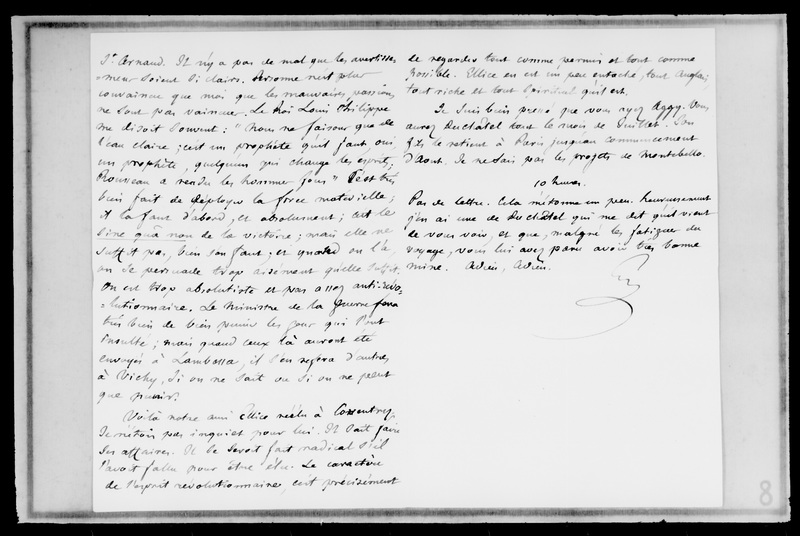 St Arnaud. Il n'y a pas de mal que les avertisse-
-mens soient si clairs. Personne n'est plus
convaincu que moi que les mauvaises passions
ne sont pas vaincues. Le Roi Louis Philippe
me disoit souvent : "Nous ne faisons que de
l'eau claire ; c'est un prophète qu'il faut, oui
un prophète, quelqu'un qui change les esprits ;
Rousseau a rendu les hommes fous" C'est très
bien fait de déployer la force matérielle ;
il la faut d'abord, et absolument ; c'est le
sine quâ non de la victoire ; mais elle ne
suffit pas, bien s'en faut ; et quand on l'a,
on se persuade trop aisément qu'elle suffit.
On est trop absolutiste et pas assez anti-révo-
-lutionnaire. Le Ministre de la guerre fera
très bien de bien punir les gens qui l'ont
insulté ; mais quand ceux là auront été
envoyés à Lambessa, il s'en refera d'autres
à Vichy, si on ne sait ou si on ne peut
que punir.
Voilà notre ami Ellice réélu à Coventry.
Je n'étois pas inquiet pour lui. Il sait faire
ses affaires. Il se seroit fait radical s'il
l'avoit fallu pour être élu. Le caractère
de l'esprit révolutionnaire, c'est précisément
de regarder tout comme permis et tout comme
possible. Ellice en est un peu entaché, tout Anglais,
tout riche et tout spirituel qu'il est.
Je suis bien pressé que vous ayez Aggy. Vous
aurez Duchâtel tout le mois de Juillet. Son
fils le retient à Paris jusqu'au commencement
d'Aout. Je ne sais pas les projets de Montebello.
10 heures.
Pas de lettre. Cela m'étonne un peu. Heureusement
j'en ai une de Duchâtel qui me dit qu'il vient
de vous voir et que, malgré les fatigues du
voyage, vous lui avez paru avoir très bonne
mine. Adieu, Adieu.
8